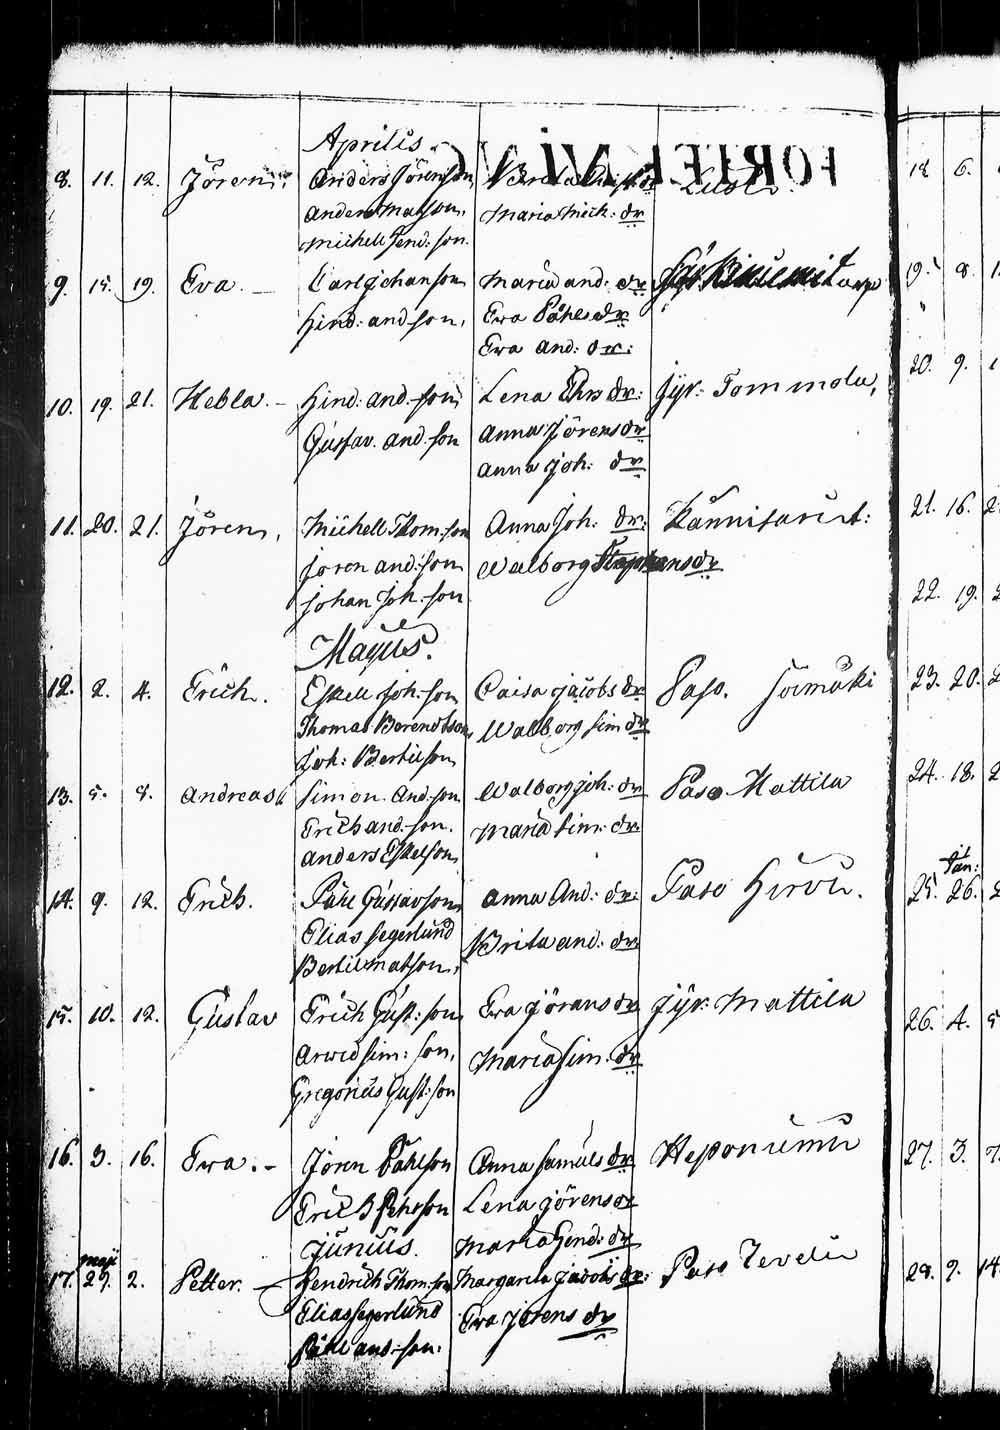 Aprilis.
8. 11. 12. Jören. Anders Jörenson
Anders Matson. Maria Mich: dr
Michell Hend: son.
9. 15. 19. Eva. — Carl Johanson Maria And: dr
Hind: And:son. Eva Påhls dr
Eva And: dr:
10. 19. 21. Hebla. — Hind: And:son Lena Ehrs dr: Jyr: Tommola.
Gustav And:son Anna Jörens dr
Anna Joh: dr
11. 20. 21. Jören. Michell Thom:son Anna Joh: dr:
Jören And:son Walborg Staphans dr
Johan Joh:son
Majus.
12. 2. 4. Erich. Eskell Joh:son Caisa Jacobs dr Paso.
Thomas Berendtson Walborg Sim dr
Joh: Bertilson
13. 5. 8. Andreas Simon And:son Walborg Joh: dr Paso Mattila
Erich And:son. Maria Sim: dr
Anders Eskelson
14. 9. 12. Erich. Påhl Gustavson Anna And: dr: Paso Hirvu.
Elias Segerlund Brita And: dr
Bertil Matson.
15. 10. 12. Gustav Erich Gust:son Eva Jörans dr Jyr: Mattila
Arvid Sim:son. Maria Sim: dr
Gregorius Gust:son
16. 3. 16. Eva. — Jören Påhlson Anna Samuls dr Heponiemu
Erich Pehrson Lena Jörens dr
Junius. Maria Hend: dr
maji
17. 29. 2. Petter. — Hendrich Thom:son Margareta Jacobs dr: Paso Tevelu
Elias Segerlund Eva Jörens dr
Påhl And:son.
18. 6.
19. 8.
20. 9.
21. 16.
22. 19.
23. 20.
24. 18.
Jan:
25. 26.
26. 4.
27. 3.
28. 9. 14